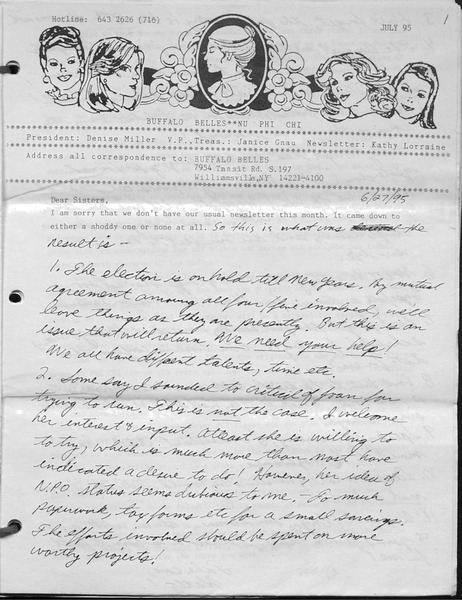 Hotline: 643 2626 (716)
JULY 95
1
BUFFALO BELLES**NU PHI CHI
President: Denise Miller V.P.,Treas.: Janice Gnau Newsletter: Kathy Lorraine
Address all correspondence to: BUFFALO BELLES
7954 Transit Rd. S.197
Williamsville,NY 14221-4100
Dear Sisters,
6/27/95
I am sorry that we don't have our usual newsletter this month. It came down to
either a shoddy one or none at all. So this is what was the
result is -
1. The election is on hold till New Years. By mutual
agreement amoung all four/five involved, we'll
leave things as they are presently. But this is an
issue that will return. We need your help!
We all have different talents, time etc.
2. Some say I sounded to critical of Joan for
trying to run. This is not the case. I welcome
her interest & input. Atleast she is willing to
to try, which is much more than most have
indicated a desire to do! However, her idea of
N.P.O. status seems dubious to me, - So much
paperwork, tax forms etc for a small savings.
The efforts involved should be spent on more
worthy projects!